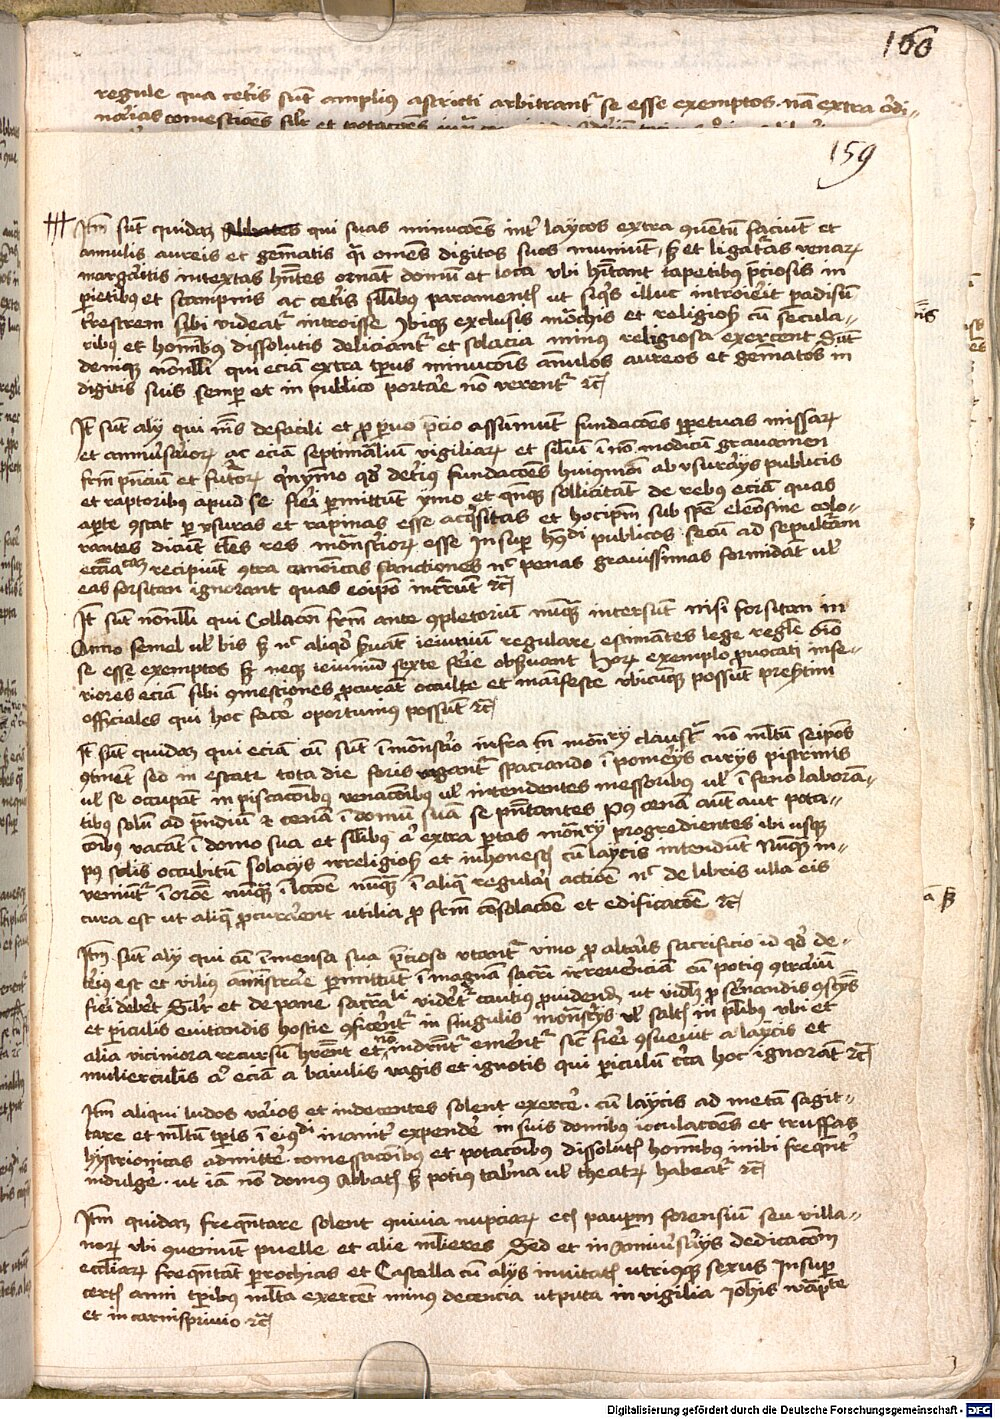 160
regule qua ceteris sunt amplius astricti arbitrantur se esse exemptos. nam extra ordi-
narias comestiones similiter et potaciones
159
Item sunt quidam Abbates qui suas minuciones inter laycos extra conventum faciunt et
annulis aureis et gemmatis quasi omnes digitos suos muniunt, sed et ligaturas venarum
margaritis intextas habentes ornant domum et loca ubi habitant tapetibus preciosis in
parietibus et scampnis ac ceteris similibus paramentis ut si quis illuc introierit paradisum
terrestrem sibi videatur introisse Ibique exclusis monachis et religiosis cum secula-
ribus et hominibus dissolutis deliciantur et solacia minus religiosa exercent Sunt
denique nonnulli qui eciam extra tempus minucionis annulos aureos et gemmatos in
digitis suis semper et in publico portare non verentur etc
Item sunt aly qui nimis defacili et pro parvo precio assumunt fundaciones perpetuas missarum
et anniversariorum ac eciam septimanalium vigiliarum et similium in non modicum gravamen
fratrum presencium et futurorum quinymmo quod deterius fundaciones huiusmodi ab usurarys publicis
et raptoribus apud se fieri permittunt ymo et quandoque sollicitant de rebus eciam quas
aperte constat per usuras et rapinas esse acquisitas et hocipsum sub specie elemosine colo-
rantes dicunt tales res monasteriorum esse Insuper huiusmodi publicos secum ad sepulturam
ecclesiasticam recipiunt contra canonicas sanctiones nec penas gravissimas formidant vel
eas forsitan ignorant quas eoipso incurrunt etc
Item sunt nonnulli qui Collacioni fratrum ante completorium nunquam intersunt nisi forsitan in
Anno semel vel bis sed nec aliquod servant ieiunium regulare estimantes lege regule omnino
se esse exemptos sed neque ieiunium sexte ferie observant Horum exemplo provocati infe-
riores eciam sibi comestiones procurant occulte et manifeste ubicunque possunt presertim
officiales qui hoc facere oportunius possunt etc
Item sunt quidam qui eciam cum sunt in monasterio infra tamen monastery claustrum non multum seipsos
continent sed in estate tota die foris vagantur spaciando in pomerys curys pistrinis
vel se occupant in piscacionibus venacionibus vel intendentes messoribus vel in feno laboran-
tibus solum ad prandium et cenam in domum suam se presentantes Post cenam autem aut pota-
cionibus vacant in domo sua et similibus aut extra portas monastery progredientes ibi usque
post solis occubitum solacys irreligiosis et inhonestis cum laycis intendunt Nunquam in-
veniuntur in oracione nunquam in leccione nunquam in aliqua regulari actione nec de libris ulla eis
cura est ut aliqua procurarent utilia pro fratrum consolacione et edificacione etc
Item sunt aly qui cum in mensa sua precioso utantur vino pro altaris sacrificio id quod de-
terius est et vilius amministrare permittunt in magnam sacramenti irreverenciam cum potius contrarium
fieri deberet Similiter et de pane sacramentali videretur cautius providendum ut videlicet pro servandis
et periculis evitandis hostie conficerentur in singulis monasterys vel saltem in pluribus ubi et
alia viciniora recursum haberent et non indifferenter emerentur sicut fieri consuevit a laycis et
mulierculis aut eciam a baiulis vagis et ignotis qui periculum circa hoc ignorant etc
Item aliqui ludos varios et indecentes solent exercere. cum laycis ad metam sagit-
tare et multum temporis in eiusmodi inaniter expendere in suis domibus ioculaciones et truffas
hystrionicas admittere. comessacionibus et potacionibus dissolutis hominibus inibi frequenter
indulgere. ut iam non domus Abbatis sed potius taberna vel theatrum habeatur etc
Item quidam frequentare solent convivia nupciarum eciam pauperum forensium seu villa-
norum ubi conveniunt puelle et alie mulieres Sed et in Anniversarys dedicacionum
ecclesiarum frequentant parrochias et Castella cum alys invitatis utriusque sexus Insuper
certis anni temporibus multa exercent minus decencia utputa in vigilia Johannis Baptiste
et in carnisprivio. etc